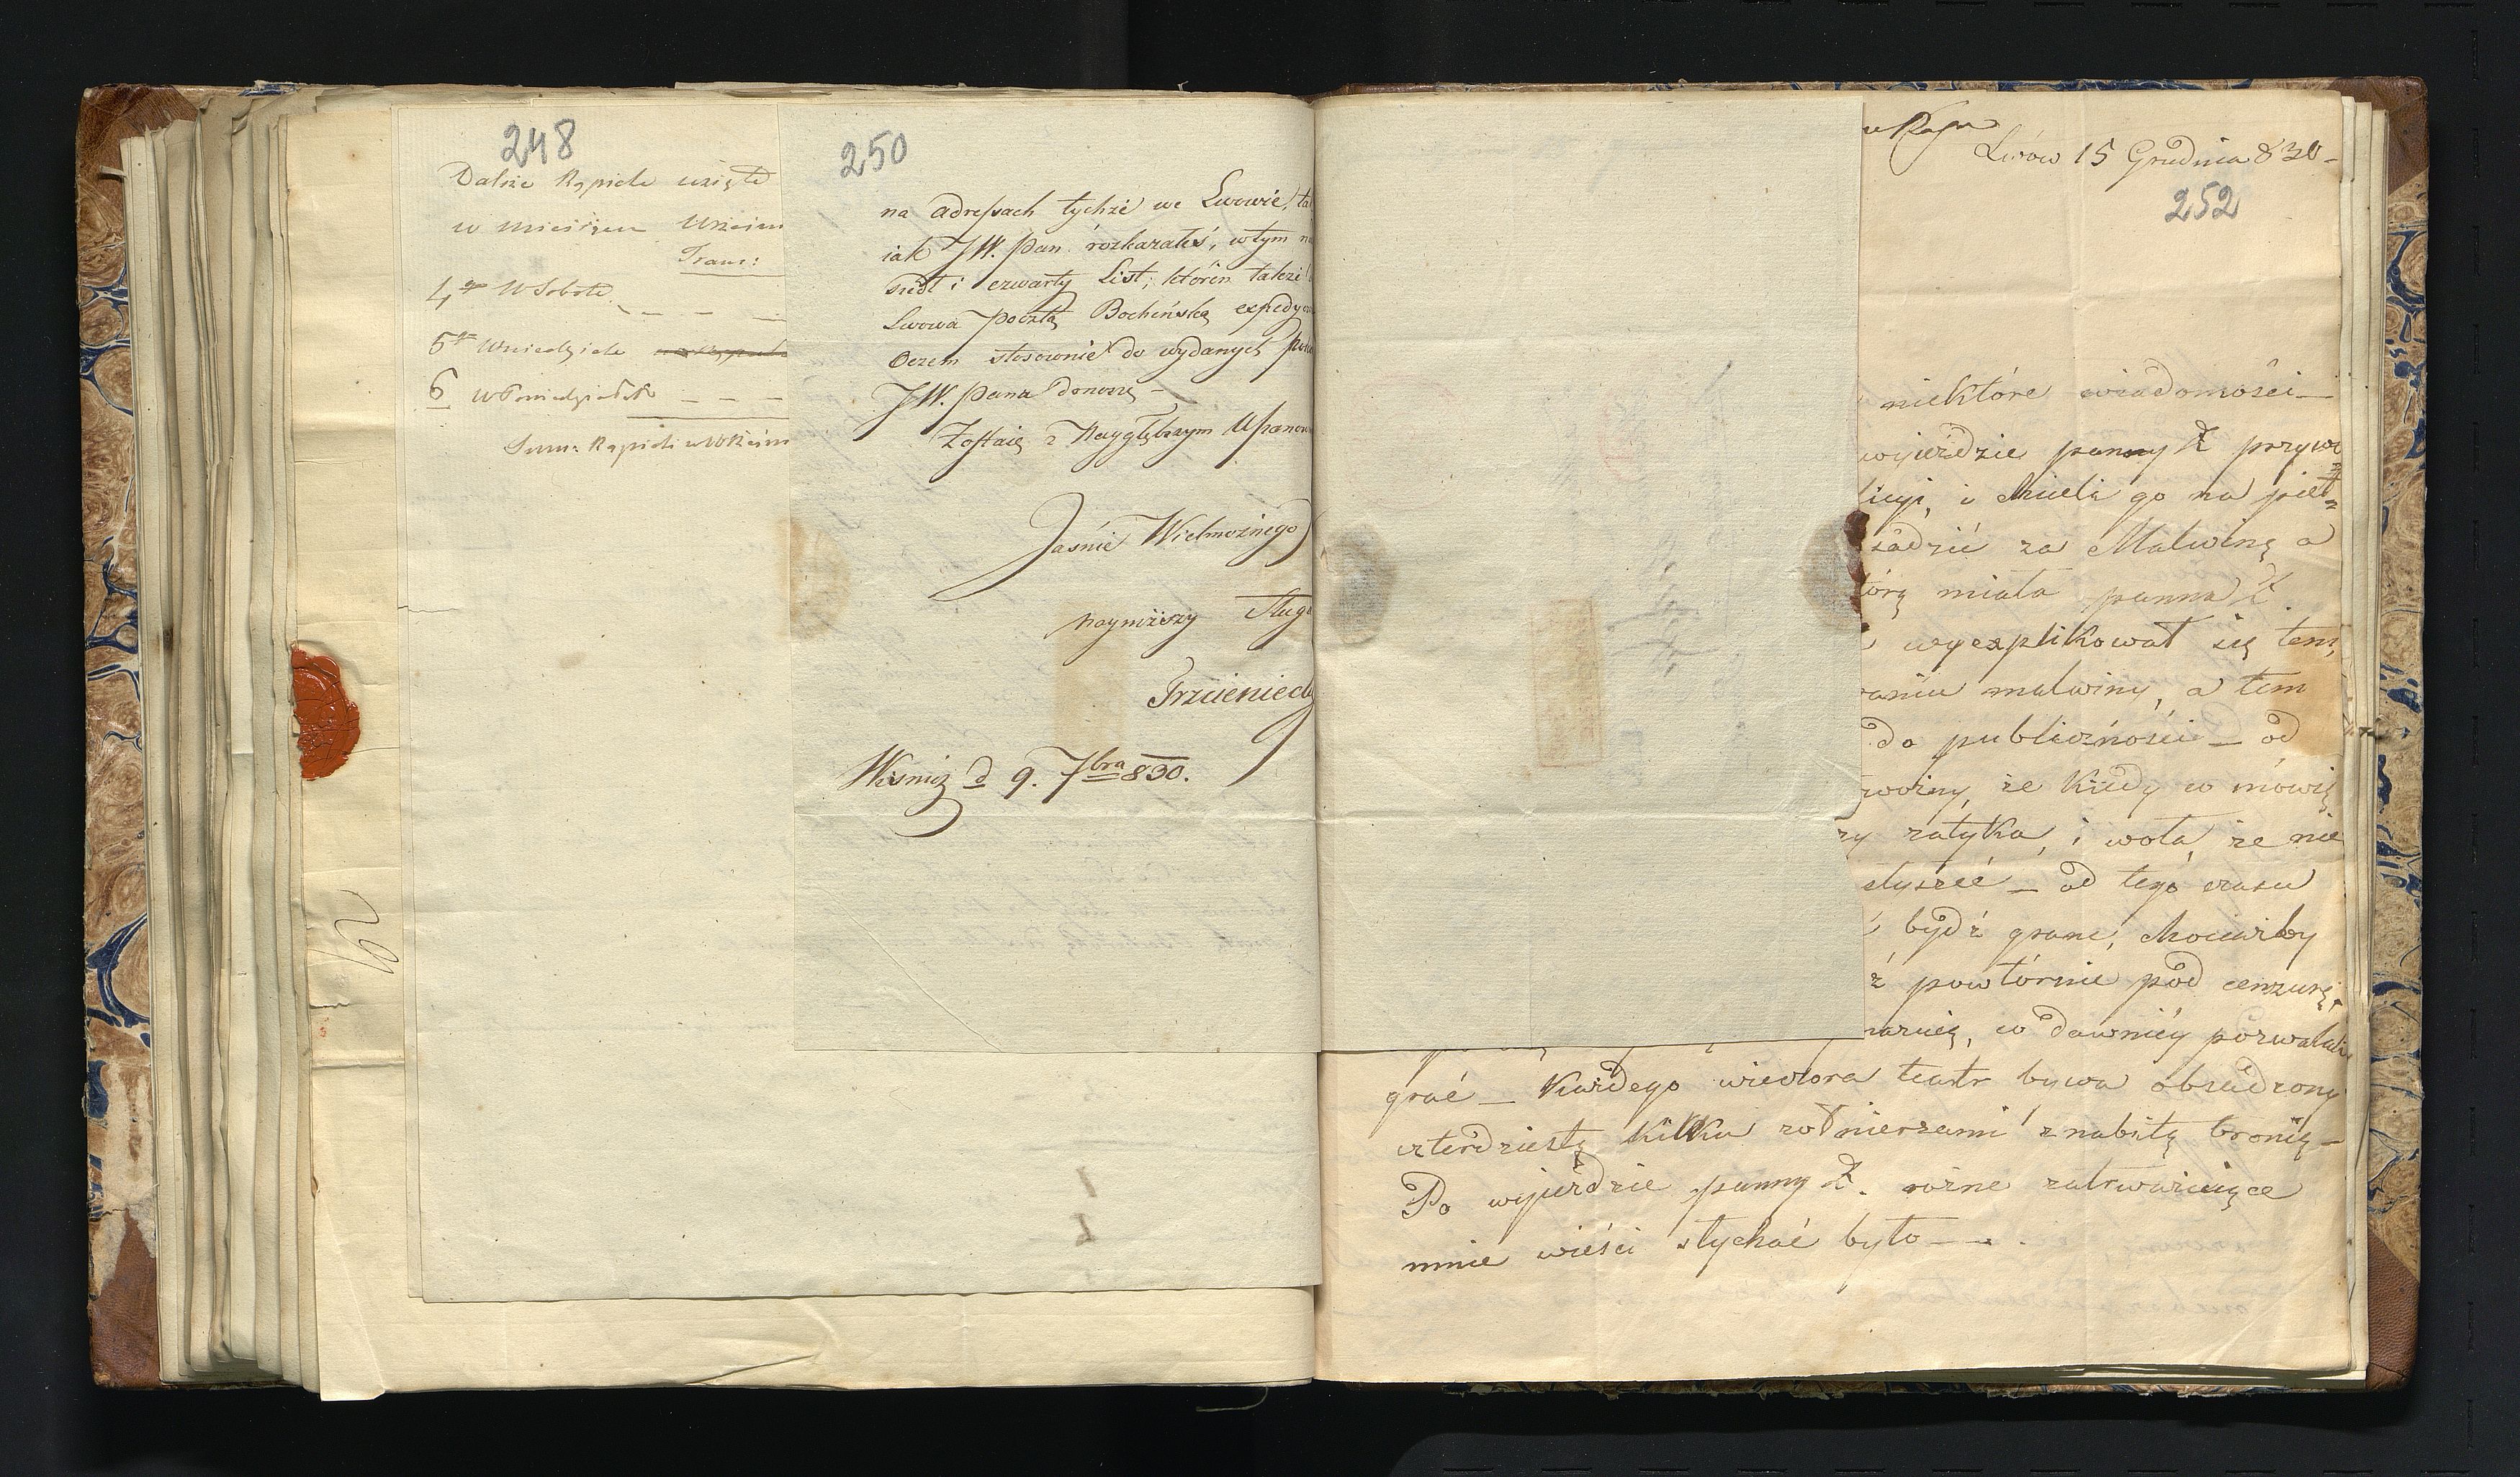 248
Dalsze Kąpiele wzięte
w Miesiącu Wrześniu
Tranc:
4go W Sobotę
5go W niedzielę
6 W Poniedziałek
Sum: Kąpieli w Wrześni
250
na adressach tychże we Lwowie, ta
iak JW. Pan rozkazałeś, w tym
szedł i czwarty List, któren także
Lwowa pocztą Bocheńską expedy
Oczem stosownie do wydanych
JW. Pana donoszę –
Zostaię z Naygłębszym Uszanow
Jaśnie Wielmożnego
nayniższy Sługa
Trzcieniecki
Wisnicz d 9. 7bra 830.
Lwów 15 Grudnia 830 –
252
niektóre wiadomości —
wyieździe panny Ł przywo
licyi, i chcieli go na
sadzić za Malwinę a
tórą miała panna Ł.
wyexplikował się tem,
raniu malwiny, a tem
do publiczności — od
że kiedy co mówią
zatyka, i woła, że nie
słyszeć — od tego czasu
bydź grane, chociażby
ż powtórnie pod cenzurę,
co dawniéy pozwalali
grać — Każdego wieczora teatr bywa obsadzony
czterdziestą kilku żołnierzami z nabitą bronią —
Po wyjeździe panny Ł. rożne zatrważaiące
mnie wieści słychać było — .